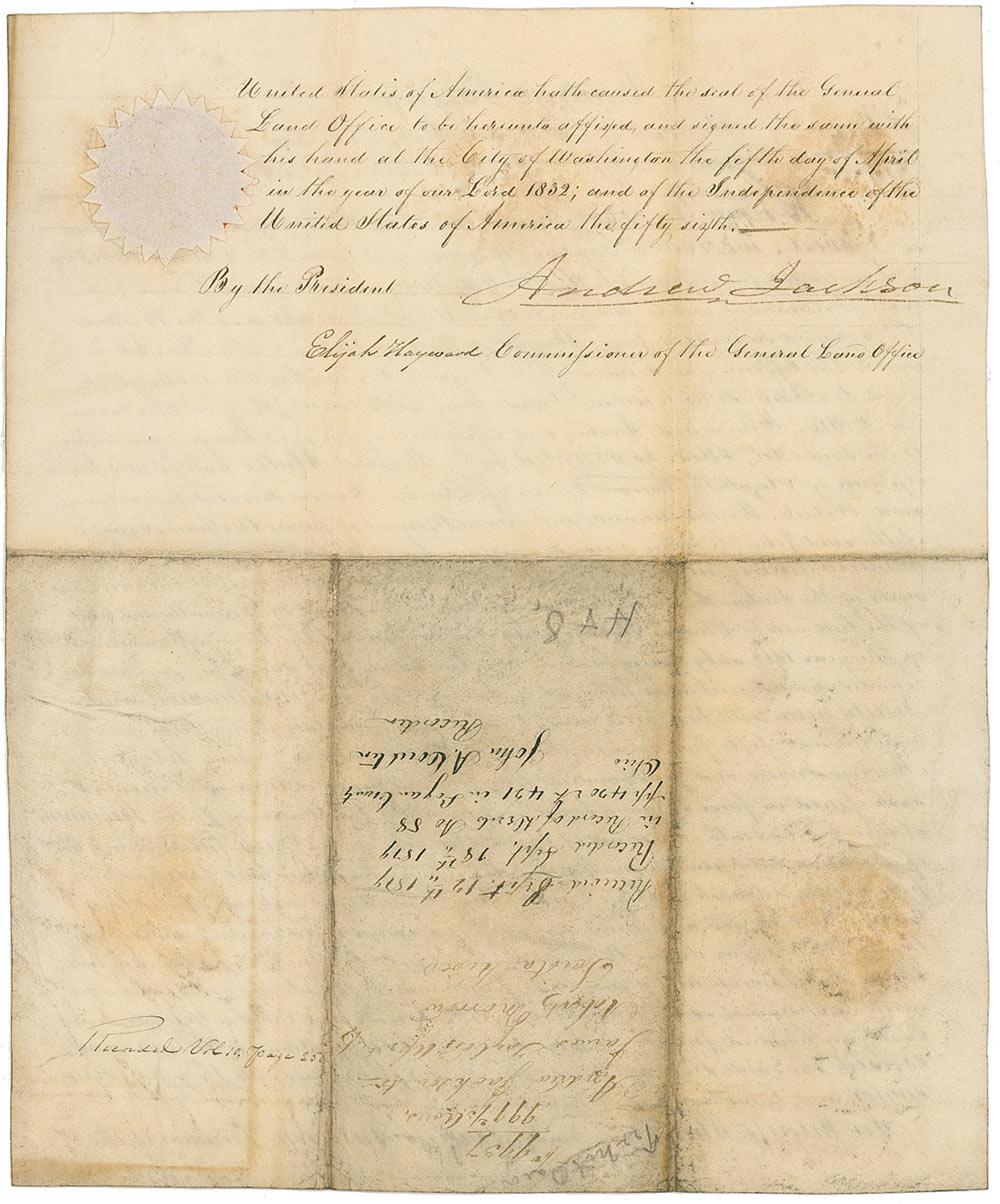 United States of America hath caused the seal of the General
Land Office to be hereunto affixed, and signed the same with
his hand at the City of Washington the fifth day of April
in the year of our Lord 1832; and of the Independence of the
United States of America the fifty sixth.
By the President
Andrew Jackson
Elijah Hayward Commissioner of the General Land Office
Recorded Vol 10, page 25
Received Sept. 12th, 1879
Recorded Sept. 18th, 1879
in Record of Deeds No 58
pp 420 & 421 in Logan County
Ohio
John A.
Recorder
Acres,
Andrew Jackson to
James Taylor
Morrow,
Scioto River.